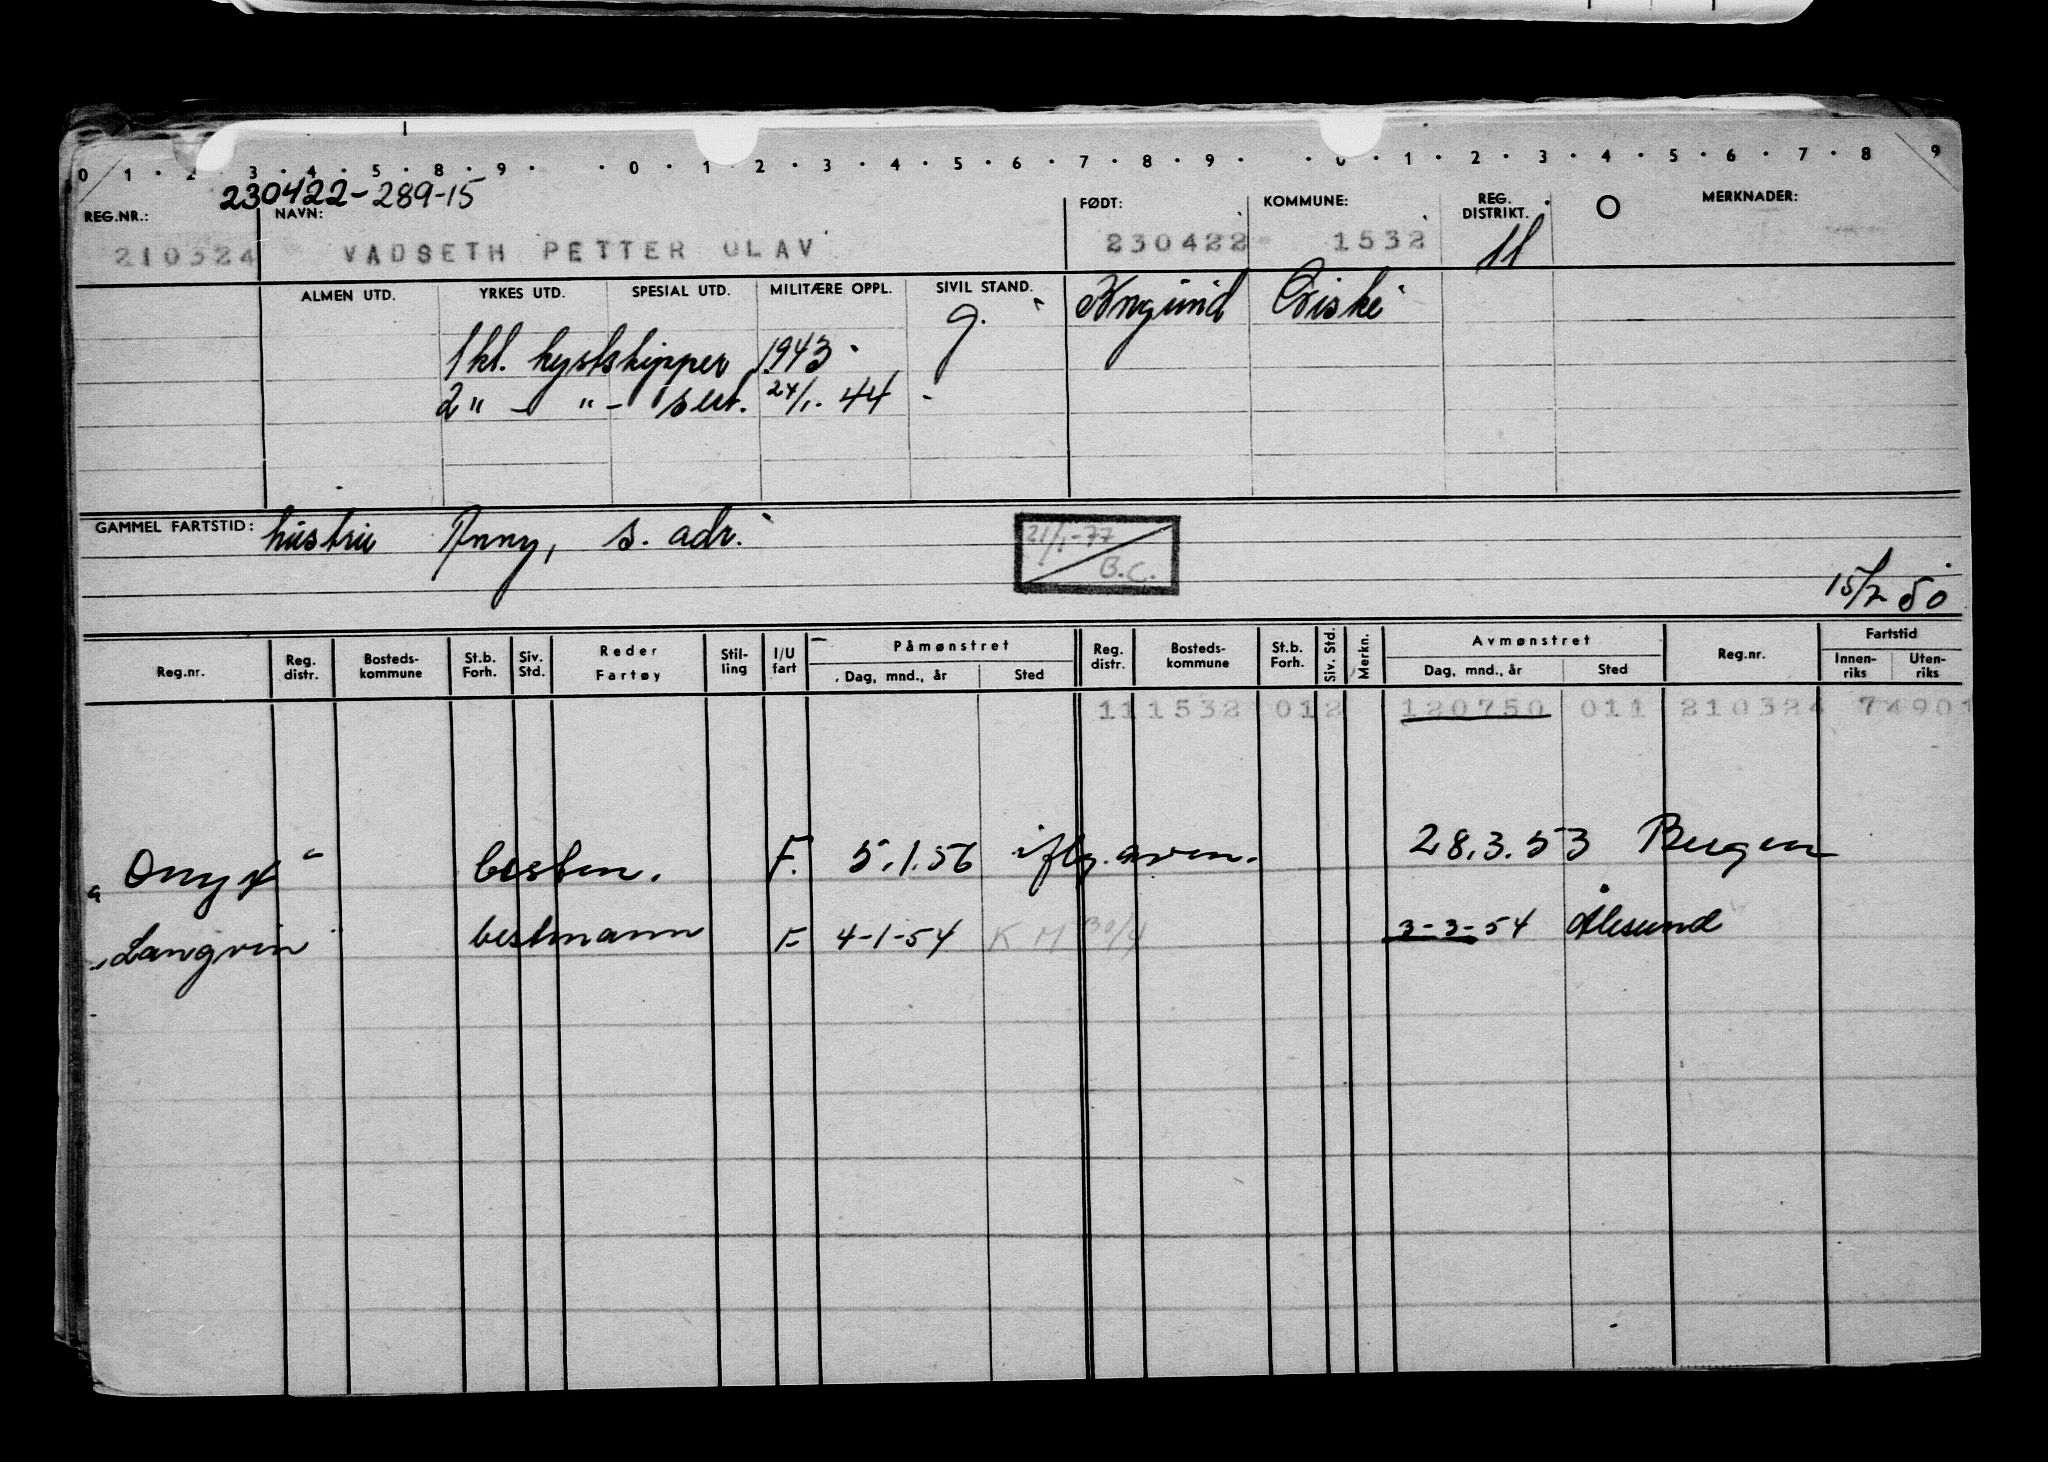 0 1 · 2 · 3 · 4 · 5 · 8 · 9 · · 0 · 1 · 2 · 3 · 4 · 5 · 6 · 7 · 8 · 9 · · 0 · 1 · 2 · 3 · 4 · 5 · 6 · 7 · 8 9
230422-289-15
REG.NR.: NAVN: FØDT: KOMMUNE: REG. DISTRIKT. O MERKNADER:
210324 VADSETH PETTER OLAV 230422 1532 11
ALMEN UTD. YRKES UTD. SPESIAL UTD. MILITÆRE OPPL. SIVIL STAND.
g. Giske
1 kl. kystskipper 1943
2 " - " - sert. 24/1. 44 -
GAMMEL FARTSTID: hustru Anny, s. adr.
21/1-77
B.C.
15/2 50
Reg.nr. Reg. distr. Bosteds-kommune St.b. Forh. Siv. Std. Reder Fartøy Stil-ling I/U fart Påmønstret Dag, mnd., år Sted Reg. distr. Bosteds-kommune St.b. Forh. Siv. Std. Merkn. Avmønstret Dag, mnd., år Sted Reg.nr. Fartstid Innen-riks Uten-riks
11 1532 012 120750 011 210324 74901
"Onyx" bestm. F. 5.1.56 iflg. avm. 28.3.53 Bergen
"Langvin" bestmann F 4-1-54 KM 30/4 3-3-54 Ålesund